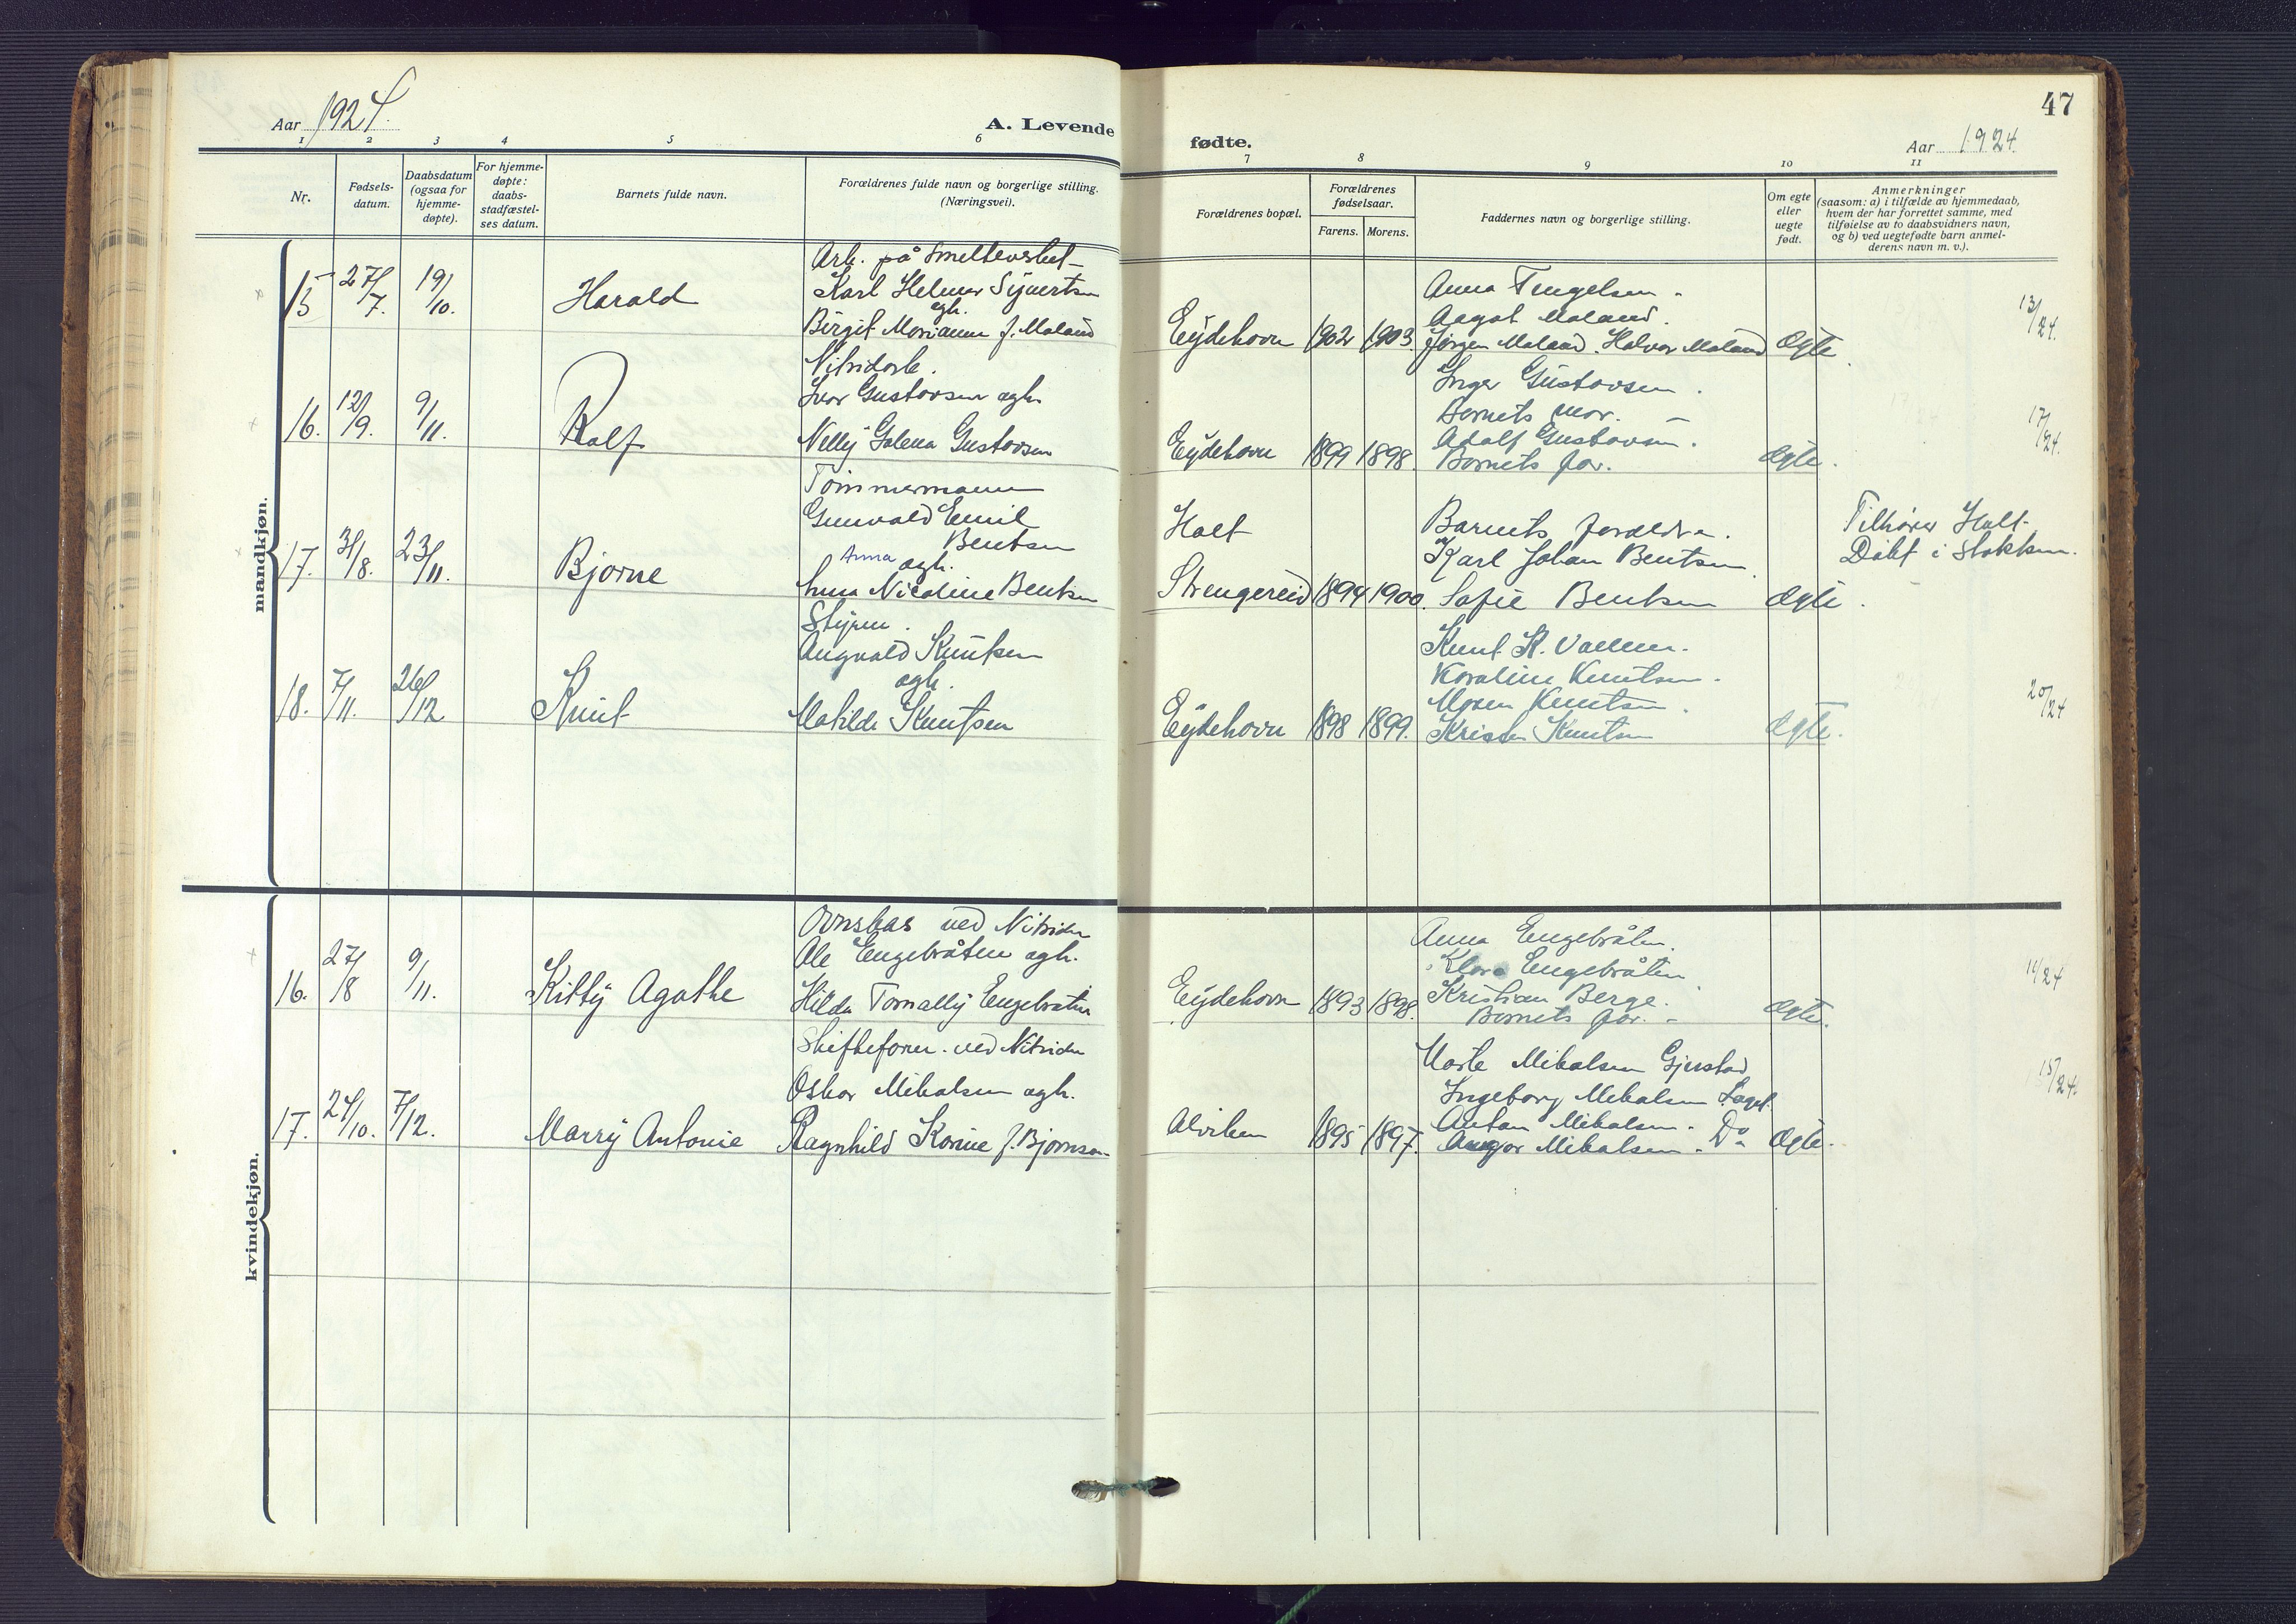 47
Aar 1924.
A. Levende
fødte.
Aar 1924
1 2 3 4 5 6 7 8 9 10 11
Nr.
Fødsels-
datum.
Daabsdatum
(ogsaa for
hjemme-
døpte).
For hjemme-
døpte:
daabs-
stadfæstel-
ses datum.
Barnets fulde navn.
Forældrenes fulde navn og borgerlige stilling.
(Næringsvei).
Forældrenes bopæl.
Forældrenes
fødselsaar.
Farens. Morens.
Faddernes navn og borgerlige stilling.
Om egte
eller
uegte
født.
Anmerkninger
(saasom: a) i tilfælde av hjemmedaab,
hvem der har forrettet samme, med
tilføielse av to daabsvidners navn,
og b) ved uegtefødte barn anmel-
derens navn m. v.).
mandkjøn.
15 27/7. 19/10. Harald
Arb. på Smelteverket
Karl Helmer Syvertsen
egh.
Birgit Marianne f. Maland
Eydehavn 1902 1903.
Anna Tengelsen.
Aagot Maland.
Jørgen Maland. Halvor Maland
Ægte.
13/24.
16. 12/9. 9/11. Ralf
Nitridarb.
Ivar Gustavsen egh.
Nelly Galena Gustavsen
Eydehavn 1899 1898.
Inger Gustavsen.
Barnets mor.
Adolf Gustavsen.
Barnets far.
Ægte.
17/24.
17. 31/8. 23/11. Bjarne
Tømmermann
Gunvald Emil
Bentsen
Anna egh.
Anna Nicoline Bentsen
Holt
Strengereid 1894 1900.
Barnets forældre.
Karl Johan Bentsen.
Sofie Bentsen
Ægte.
Tilhører Holt.
Døbt i Stokken.
18. 7/11. 26/12 Knut
Styrm.
Angvald Knutsen
egh.
Matilde Knutsen
Eydehavn 1898 1899.
Knut K. Vallen.
Karoline Knutsen.
Maren Knutsen.
Kristen Knutsen
Ægte.
20/24
kvindekjøn.
16. 27/8 9/11. Kitty Agathe
Ovnsbas ved Nitriden
Ole Engebråten egh.
Hilda Tomally Engebråten
Eydehavn 1893 1898.
Anna Engebråten.
Klara Engebråten
Kristian Berge.
Barnets far.
Ægte.
11/24
17. 24/10. 7/12. Marry Antonie
Skifteform. ved Nitriden
Oskar Mikalsen egh.
Ragnhild Korine f. Bjørnsen
Alviken 1895 1897.
Marte Mikalsen Gjerstad
Ingeborg Mikalsen
Anton Mikalsen.
Mikalsen. Do
Ægte.
15/24.